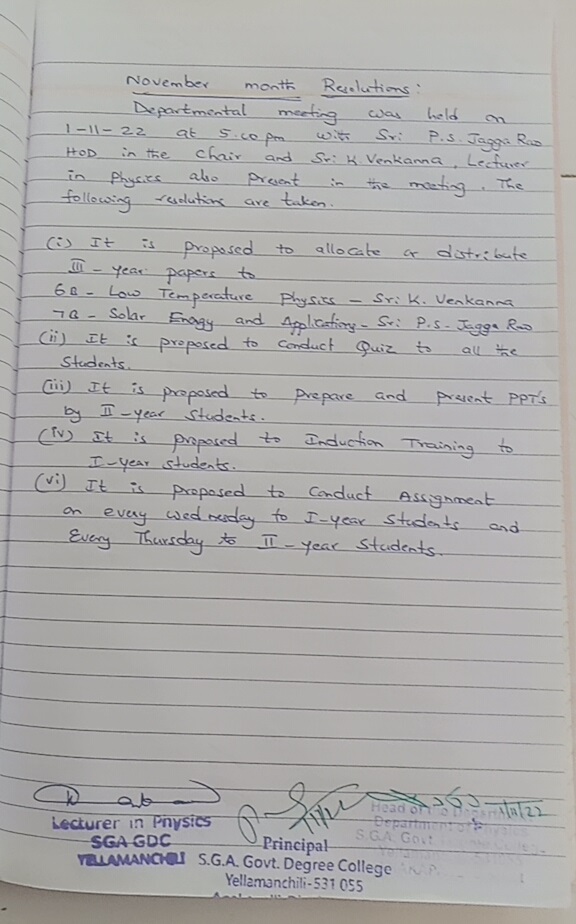 November month Resolutions:
Departmental meeting was held on
1-11-22 at 5.00 pm with Sri P.S. Jagga Rao
HOD in the chair and Sri K. Venkanna, Lecturer
in Physics also present in the meeting. The
following resolutions are taken.
(i) It is proposed to allocate or distribute
III-year papers to
6B - Low Temperature Physics - Sri K. Venkanna
7B - Solar Energy and Applications - Sri P.S. Jagga Rao
(ii) It is proposed to conduct Quiz to all the
Students.
(iii) It is proposed to prepare and present PPT's
by II-year students.
(iv) It is proposed to Induction Training to
I-year students.
(vi) It is proposed to conduct Assignment
on every wednesday to I-year students and
Every Thursday to II-year students.
Lecturer in Physics
SGA GDC
YELLAMANCHILI
1/11/22
Principal
S.G.A. Govt. Degree College
Yellamanchili-531 055
1/11/22
Head of the Department
Department of Physics
S.G.A. Govt